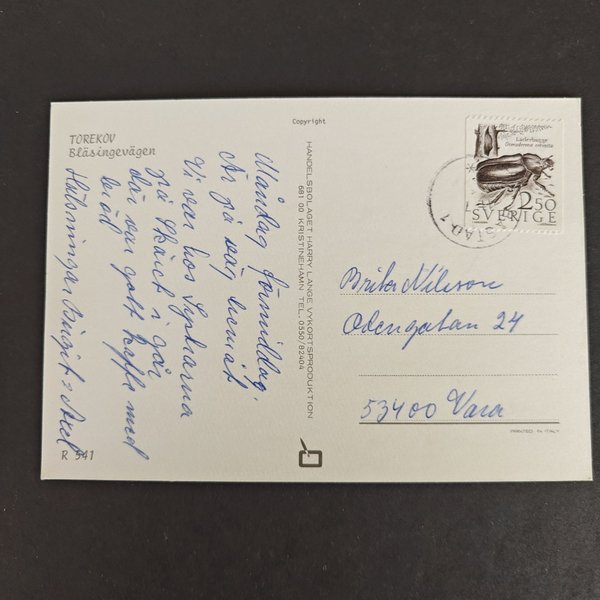 Copyright
TOREKOV
Bläsingevägen
Måndag förmiddag.
Är på väg hemåt
Vi var hos
på i går
där var gott kaffe med
bröd
Hälsningar Birgit o Axel
R 541
HANDELSBOLAGET HARRY LANGE VYKORTSPRODUKTION
681 00 KRISTINEHAMN TEL. 0550/82404
Läderbagge
Osmoderma eremita
2.50
SVERIGE
STAD 1
Brita Nilsson
Odengatan 24
53400 Vara
PRINTED IN ITALY